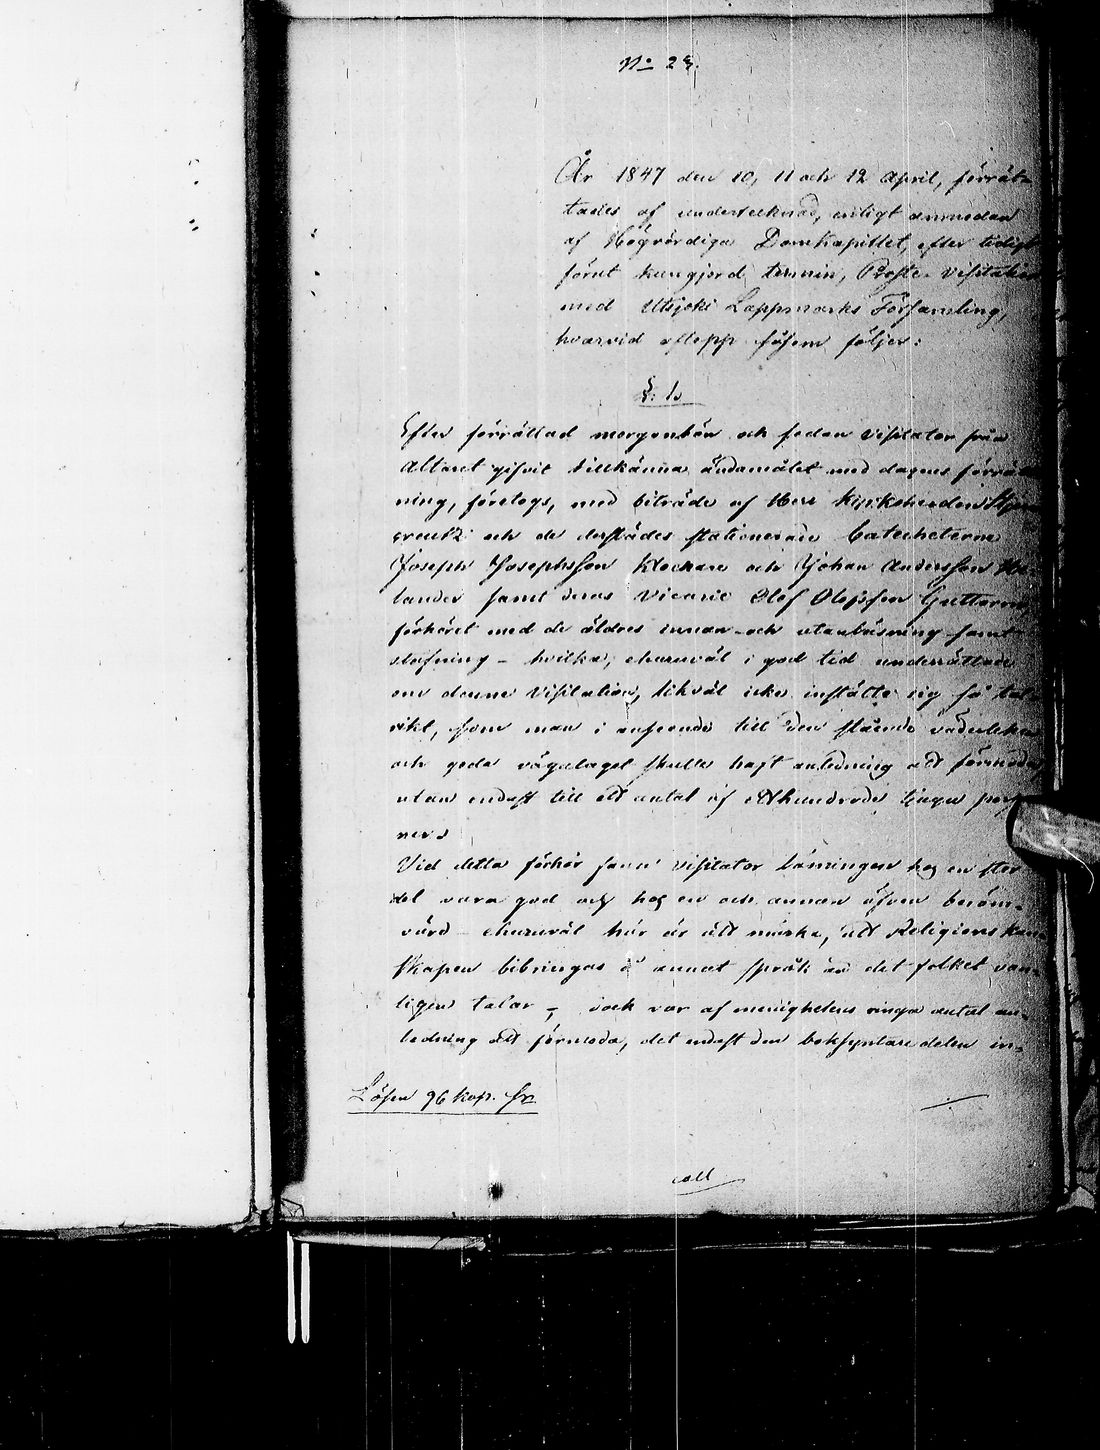 No 23.
År 1847 den 10, 11 och 12 April, förrät-
tades af undertecknad, enligt anmodan
af Högvördiga Domkapitlet, efter tidigt
förut kungjord termin, Prosts-Visitation
med Utsjoki Lappmarks Församling,
hvarvid aflopp såsom följer:
§: 1.
Efter förrättad morgonbön och sedan Visitator från
Altaret gifvit tillkänna ändamålet med dagens förrätt-
ning, företogs, med biträde af Herr Kyrkoherden
och de derstädes stationerade Catecheterne
Joseph Josephsson Klockare och Johan Andersson He-
lander samt deras Vicarie Olof Olofsson
förhöret med de äldres innan- och utanläsning samt
stafning - hvilka, ehuruväl i god tid underrättade
om denne Visitation, likväl icke instälte sig så tal-
rikt, som man i anseende till den stående väderleken
och goda väglaget skulle haft anledning att förmoda,
utan endast till ett antal af etthundrade tjugu perso-
ner.
Vid detta förhör fann Visitator läsningen hos en stor
del vara god och hos en och annan äfven beröm-
värd - ehuruväl här är att märka, att Religions kun-
skapen bibringas å annat språk än det folket van-
ligen talar -, dock var af menighetens ringa antal an-
ledning att förmoda, det endast den boksyntare delen in-
Lösen 96 kop. Sr